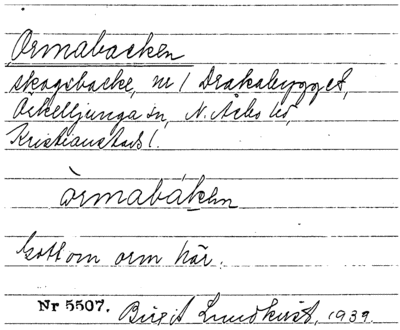 Ormabacken
skogsbacke, nr 1 Dråkabygget,
Örkelljunga sn, N. Åsbo hd,
Kristianstads l.
òrmabáken
Gott om orm här.
Nr 5507. Birgit Lundkvist, 1939.